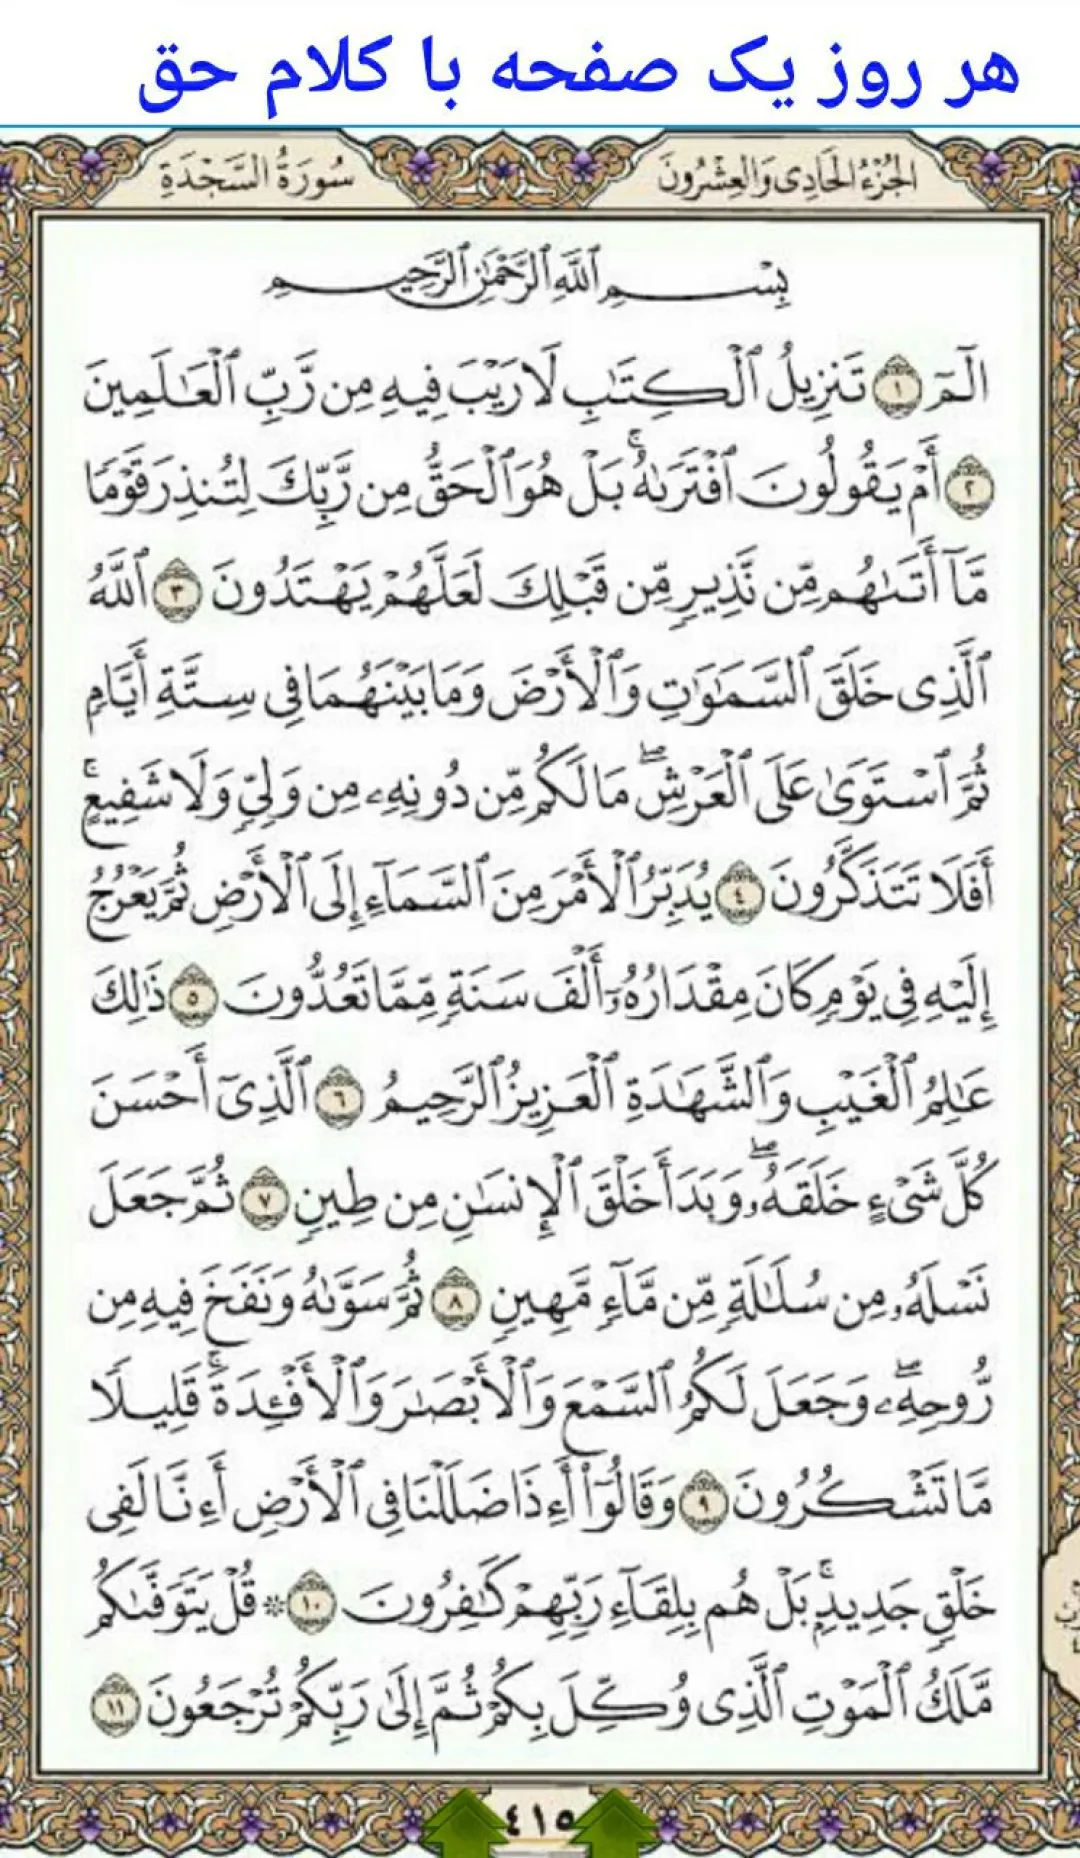 هر روز یک صفحه با کلام حق
الجُزْءُ الحَادِي وَالعِشْرُونَ
سُورَةُ السَّجْدَةِ
بِسْمِ ٱللَّهِ ٱلرَّحْمَٰنِ ٱلرَّحِيمِ
الٓمٓ ١ تَنزِيلُ ٱلْكِتَٰبِ لَا رَيْبَ فِيهِ مِن رَّبِّ ٱلْعَٰلَمِينَ
٢ أَمْ يَقُولُونَ ٱفْتَرَىٰهُ ۚ بَلْ هُوَ ٱلْحَقُّ مِن رَّبِّكَ لِتُنذِرَ قَوْمًا
مَّآ أَتَىٰهُم مِّن نَّذِيرٍ مِّن قَبْلِكَ لَعَلَّهُمْ يَهْتَدُونَ ٣ ٱللَّهُ
ٱلَّذِى خَلَقَ ٱلسَّمَٰوَٰتِ وَٱلْأَرْضَ وَمَا بَيْنَهُمَا فِى سِتَّةِ أَيَّامٍ
ثُمَّ ٱسْتَوَىٰ عَلَى ٱلْعَرْشِ ۖ مَا لَكُم مِّن دُونِهِۦ مِن وَلِىٍّ وَلَا شَفِيعٍ ۚ
أَفَلَا تَتَذَكَّرُونَ ٤ يُدَبِّرُ ٱلْأَمْرَ مِنَ ٱلسَّمَآءِ إِلَى ٱلْأَرْضِ ثُمَّ يَعْرُجُ
إِلَيْهِ فِى يَوْمٍ كَانَ مِقْدَارُهُۥٓ أَلْفَ سَنَةٍ مِّمَّا تَعُدُّونَ ٥ ذَٰلِكَ
عَٰلِمُ ٱلْغَيْبِ وَٱلشَّهَٰدَةِ ٱلْعَزِيزُ ٱلرَّحِيمُ ٦ ٱلَّذِىٓ أَحْسَنَ
كُلَّ شَىْءٍ خَلَقَهُۥ ۖ وَبَدَأَ خَلْقَ ٱلْإِنسَٰنِ مِن طِينٍ ٧ ثُمَّ جَعَلَ
نَسْلَهُۥ مِن سُلَٰلَةٍ مِّن مَّآءٍ مَّهِينٍ ٨ ثُمَّ سَوَّىٰهُ وَنَفَخَ فِيهِ مِن
رُّوحِهِۦ ۖ وَجَعَلَ لَكُمُ ٱلسَّمْعَ وَٱلْأَبْصَٰرَ وَٱلْأَفْـِٔدَةَ ۚ قَلِيلًا
مَّا تَشْكُرُونَ ٩ وَقَالُوٓا۟ أَءِذَا ضَلَلْنَا فِى ٱلْأَرْضِ أَءِنَّا لَفِى
خَلْقٍ جَدِيدٍۭ ۚ بَلْ هُم بِلِقَآءِ رَبِّهِمْ كَٰفِرُونَ ١٠ ۞ قُلْ يَتَوَفَّىٰكُم
مَّلَكُ ٱلْمَوْتِ ٱلَّذِى وُكِّلَ بِكُمْ ثُمَّ إِلَىٰ رَبِّكُمْ تُرْجَعُونَ ١١
٤١٥